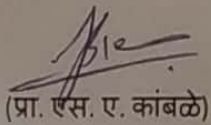 (प्रा. एस. ए. कांबळे)